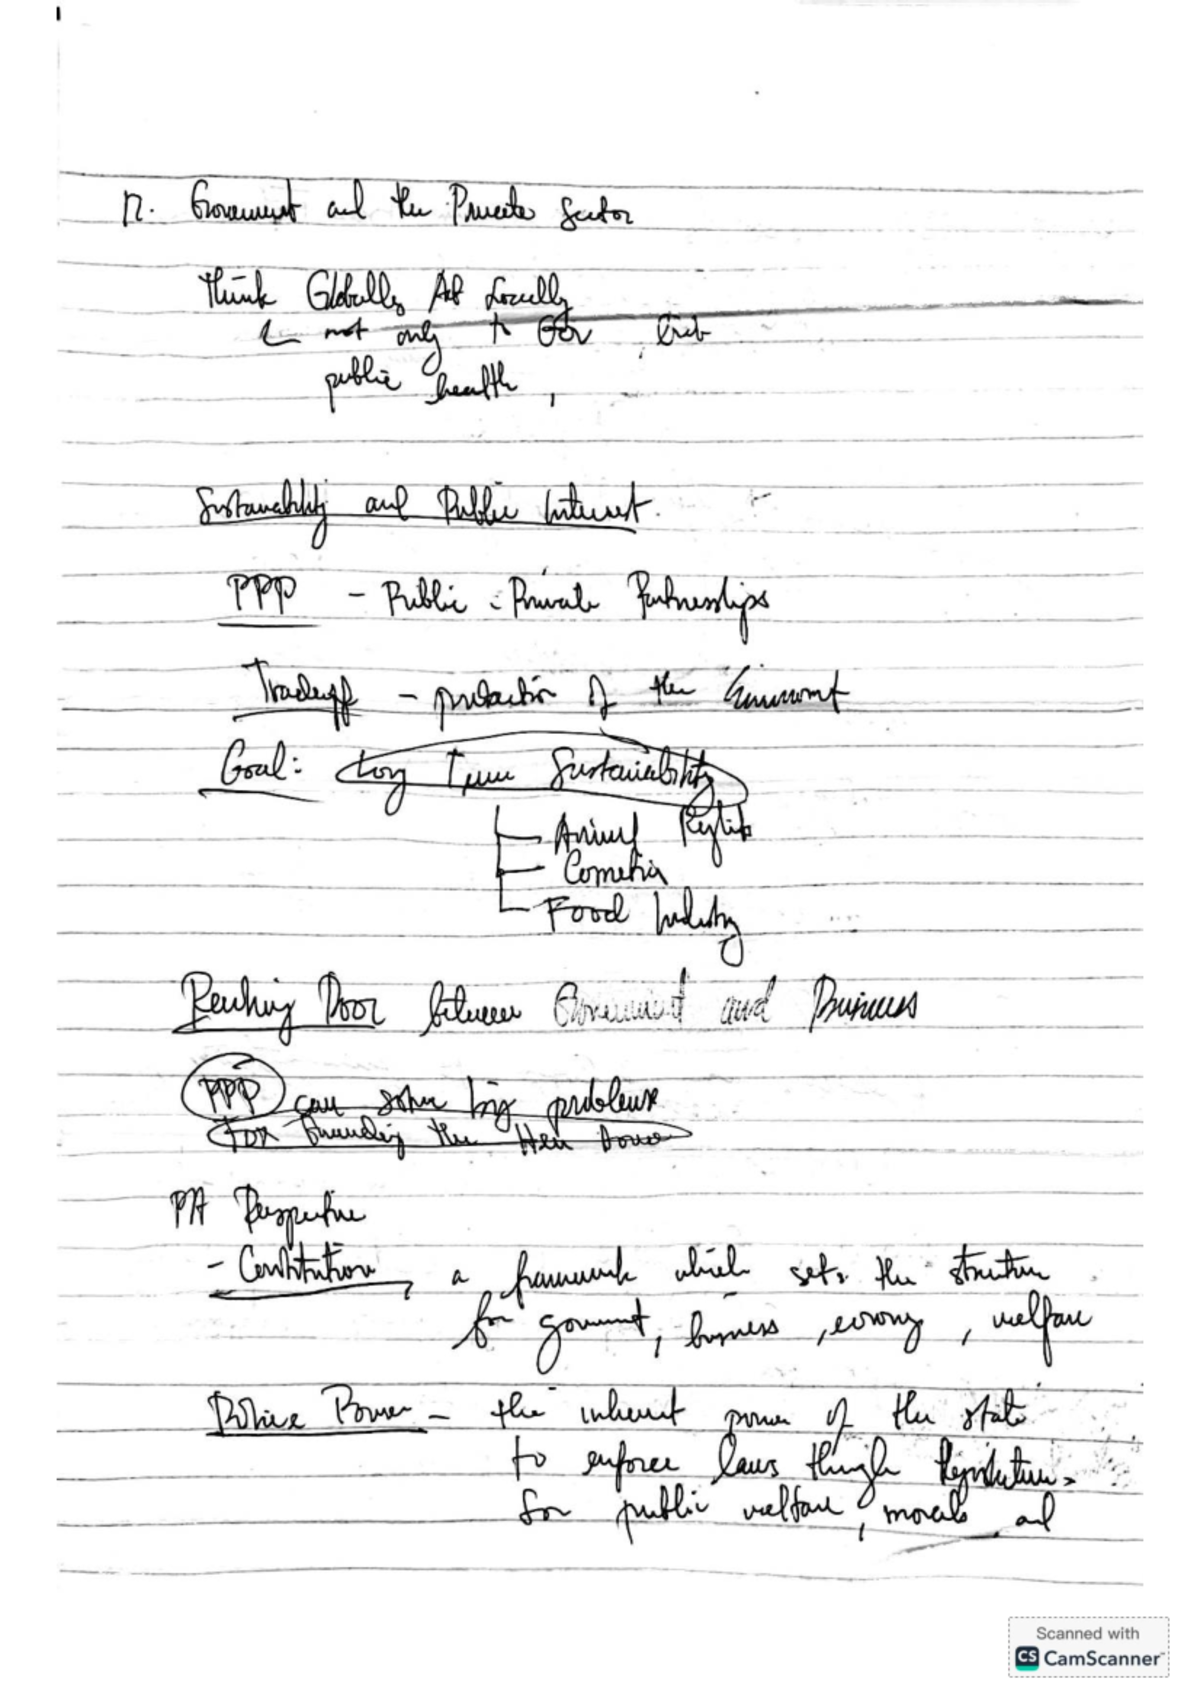 17. Government and the Private Sector
Think Globally, Act Locally
not only to Gov, but
public health,
Sustainability and Public Interest.
PPP - Public - Private Partnerships
Tradeoff - protection of the Environment
Goal: Long Term Sustainability
Animal Rights
Cosmetics
Food Industry
Revolving Door between Government and Business
PPP can solve big problems
For the
PA Perspective
- Constitution, a framework which sets the structure
for government, business, economy, welfare
Police Power - the inherent power of the state
to enforce laws through legislature
for public welfare, morals, and
Scanned with
CS CamScanner